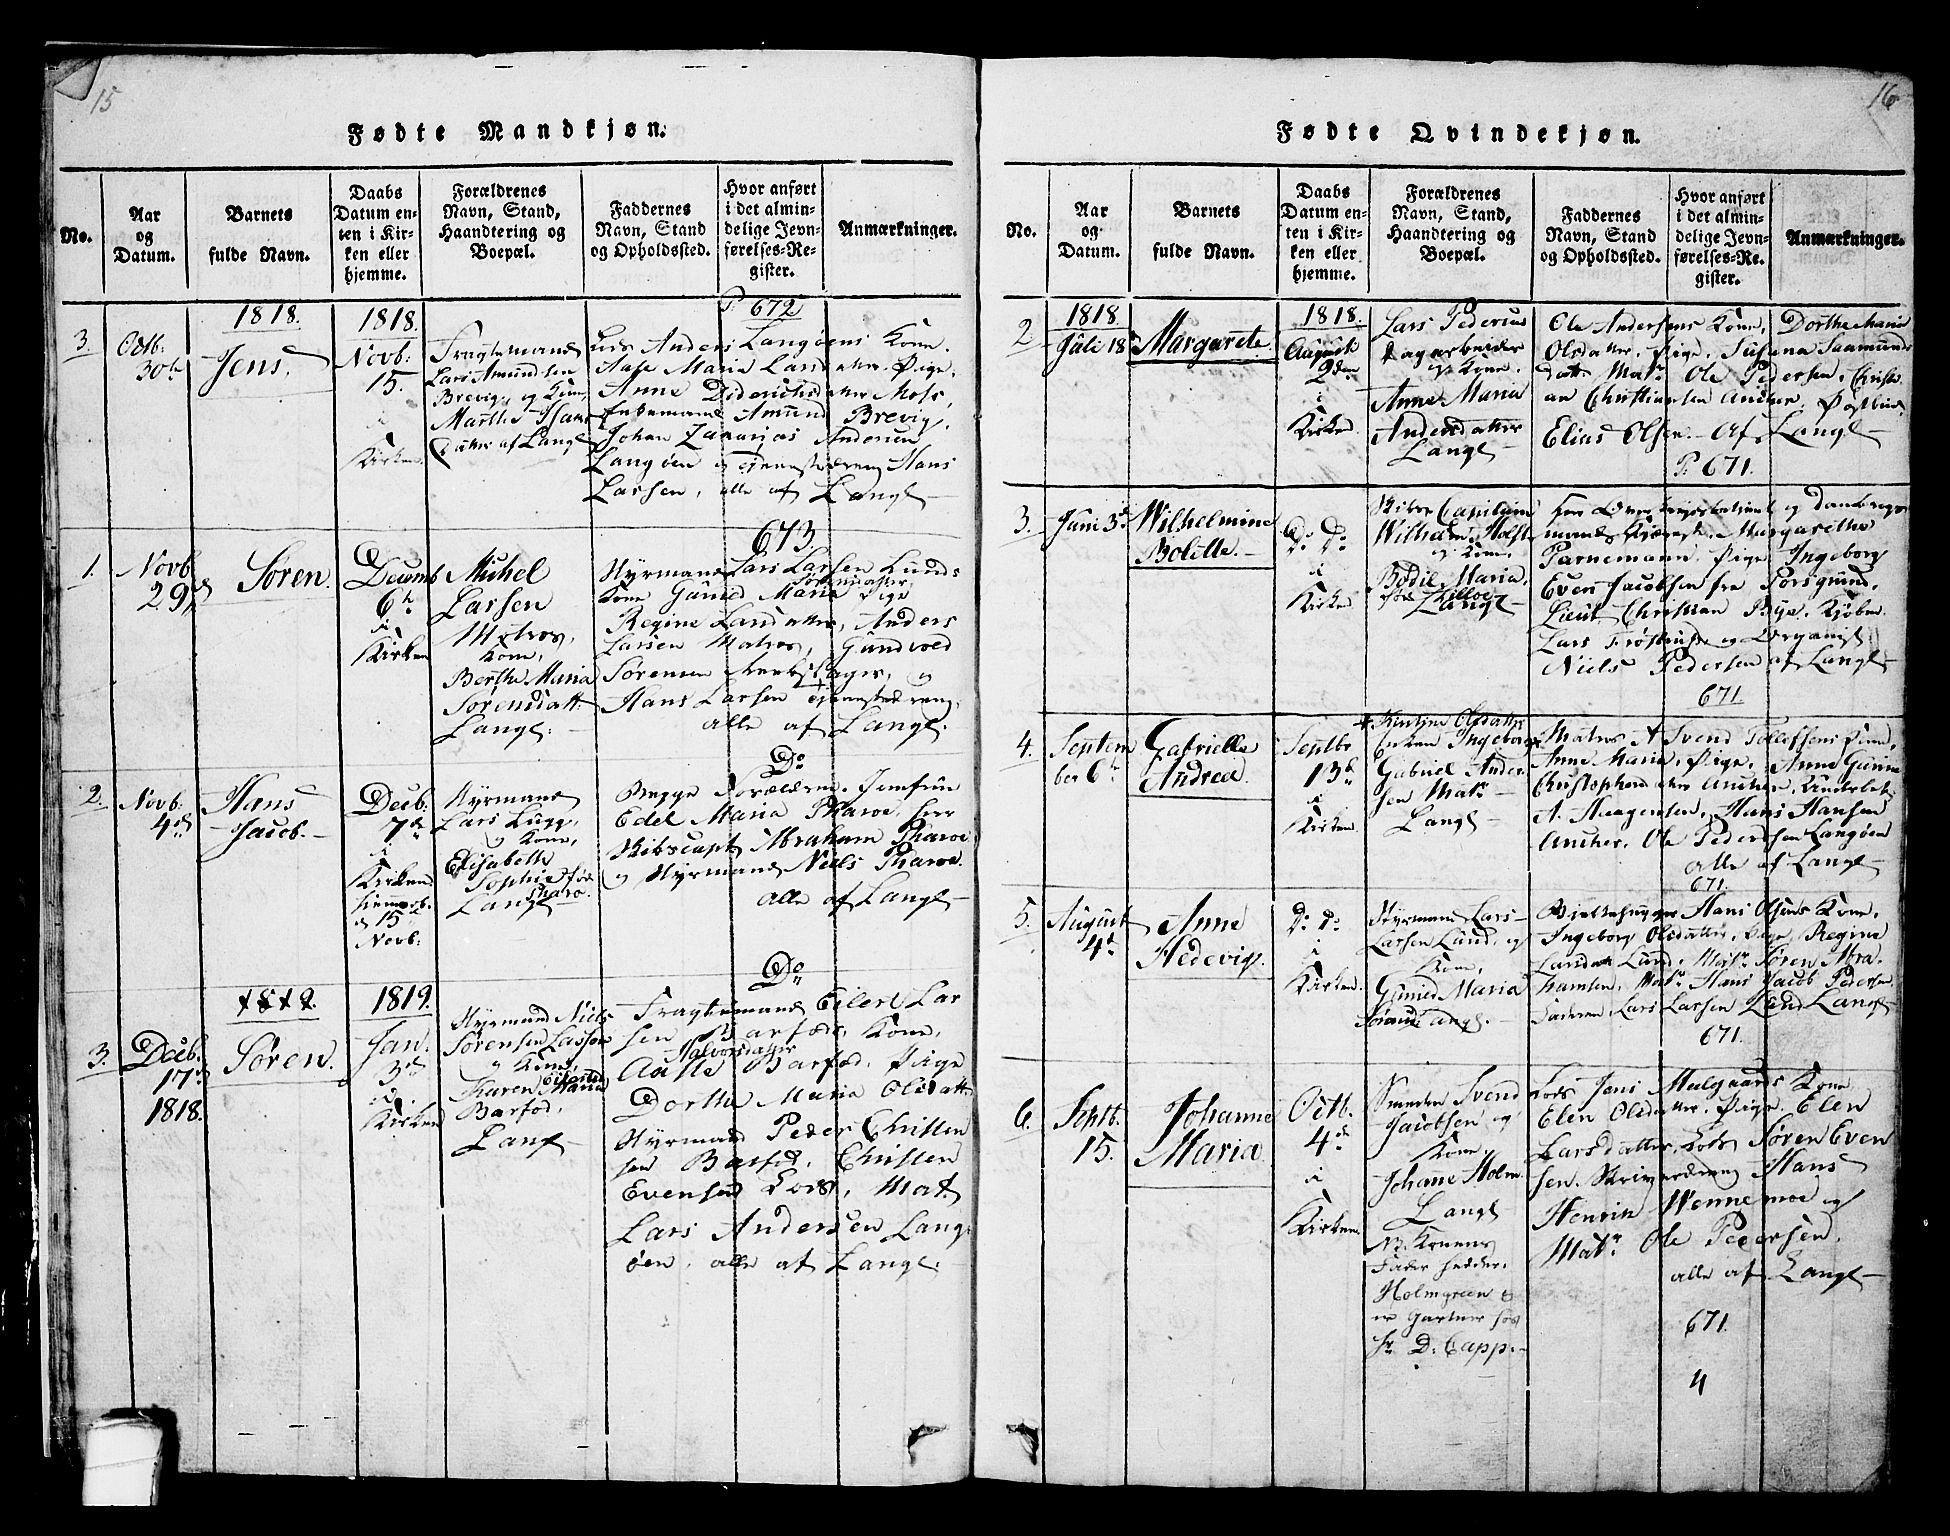 15
Fødte Mandkjøn.
No.
Aar
og
Datum.
Barnets
fulde Navn.
Daabs
Datum en-
ten i Kir-
ken eller
hjemme.
Forældrenes
Navn, Stand,
Haandtering og
Boepæl.
Faddernes
Navn, Stand
og Opholdssted.
Hvor anført
i det almin-
delige Jevn-
førelses-Re-
gister.
Anmærkninger.
3
1818.
Octb.
30te
Jens.
1818.
Novb:
15.
i
Kirken.
Fragtemand
Lars Amundsen
Brevig, og Kone
Marthe Isaac
Datter af Langs
P. 672
Lods Anders Langøens Kone.
Aase Maria Larsdatter. Pige.
Anne Didrichsdatter
Enkemand Amund Brevig,
Johan Zakarias Andersen
Langøen og Hans
Lassen, alle af Langs
1.
Novb
29de
Søren.
Decemb
6te
i
Kirken
Michel
Lassen
Matros,
Kone,
Berthe Maria
Sørensdatt.
Langs.
673.
Styrmand Lars Larsen Lunds
Kone Gunild Maria Sørensdatter, Pige
Regine Larsdatter, Anders
Larsen Matros, Gundvold
Sørensen, og
Hans Larsen
alle af Langs.
2.
Novb:
4de
Hans
Jacob.
Decb:
7de
i
Kirken
hiemdb.
d 15
Novb:
Styrmand
Lars Lugg,
og Kone,
Elisabeth
Sophie fød
Pharo.
Langs
Do
Begge Forældrene. Jomfrue
Edel Maria Pharoe, Herr
Skibscapt. Abraham Pharoe
og Styrmand Niels Pharoe.
alle af Langs
3.
1819.
Decb.
17de
1818.
Søren.
1819.
Jan.
3de
i
Kirken
Styrmand Niels
Sørensen Lassen
og Kone,
Karen Maria
Barfod.
Langs
Do
Fragtemand Eilert Lar
sen Barfods Kone.
Halvorsdatter
Aatte Barfod, Pige
Dorthe Maria Olsdatt
Styrmand Peder Christen
sen Barfod. Christen
Evensen Lods, Mat.
Lars Andersen Lang
øen, alle af Langs.
16
Fødte Qvindekjøn.
No.
Aar
og
Datum.
Barnets
fulde Navn.
Daabs
Datum en-
ten i Kir-
ken eller
hjemme.
Forældrenes
Navn, Stand,
Haandtering og
Boepæl.
Faddernes
Navn, Stand
og Opholdssted.
Hvor anført
i det almin-
delige Jevn-
førelses-Re-
gister.
Anmærkninger.
2
1818
Juli 18
Margarete.
1818.
August
2den
i
Kirken
Lars Pedersens
Dagarbeider
og Kone.
Anne Maria
Andersdatter
Langs
Ole Andersens Kone, Dorthe Maria
Olsdatter, Pige, Susana Saamunds
datter Matr. Ole Pedersen, Christi
an Christiansen Ancher, Postbud
Elias Olsen. Af Langs
P. 671.
3.
Juni 3de
Wilhelmine
Bolette.
Do Do
i
Kirken
Skibs Capitain
Wilhelm Holst
og Kone,
Bodil Maria,
fød
Langs
Herr Overkrigscommissair og Dannebrogs
mand, Margarethe
Parnemann, Pige Ingeborg
Even Jacobsen fra Porsgrund,
Lieut Christian Bye, Kjøbm.
Lars Frøstrup og Organist
Niels Pedersen af Langs
671.
4.
Septem
ber 6te
Gabrielle
Andrea.
Septbr
13de
i
Kirken
Kirstine Olsdatter
Enken Ingeborg
Gabriel Ander
sen Matr
Langs
Matros A Svend Tollefsens Pige,
Anne Maria, Pige, Anne Gurine
Christophersdatter Ancher, Underbet
A. Aaagensen, Hans Hansen
Ancher. Ole Pedersen Langøen
alle af Langs
671.
5.
August
4de
Anne
Hedevig.
Do Do
i
Kirken.
Styrmand Lars
Larsen Lund, og
Kone,
Gunild Maria
Langs.
Hans Olsens Kone.
Ingeborg Olsdatter, Pige Regine
Larsdatt Lund. Matr. Søren Abra
hamsen, Matr. Hans Jacob Pedersen
Faderen, Lars Larsen Lund Langs
671.
6.
Septb.
15.
Johanne
Maria
Octb.
4de
i
Kirken
Smeden Svend
Jacobsen og
Kone,
Johanne Holm
Langs
NB. Konens
Fader hedder
Holmgreen &
er Gartner hos
Hr D. Capp.
Lods Jens Malgaards Kone
Elen Olsdatter. Pige. Elen
Larsdatter, Lods Søren Even
sen. Skriverdreng Hans
Henrik Wennemoe og
Matr Ole Pedersen.
alle af Langs
671.
4